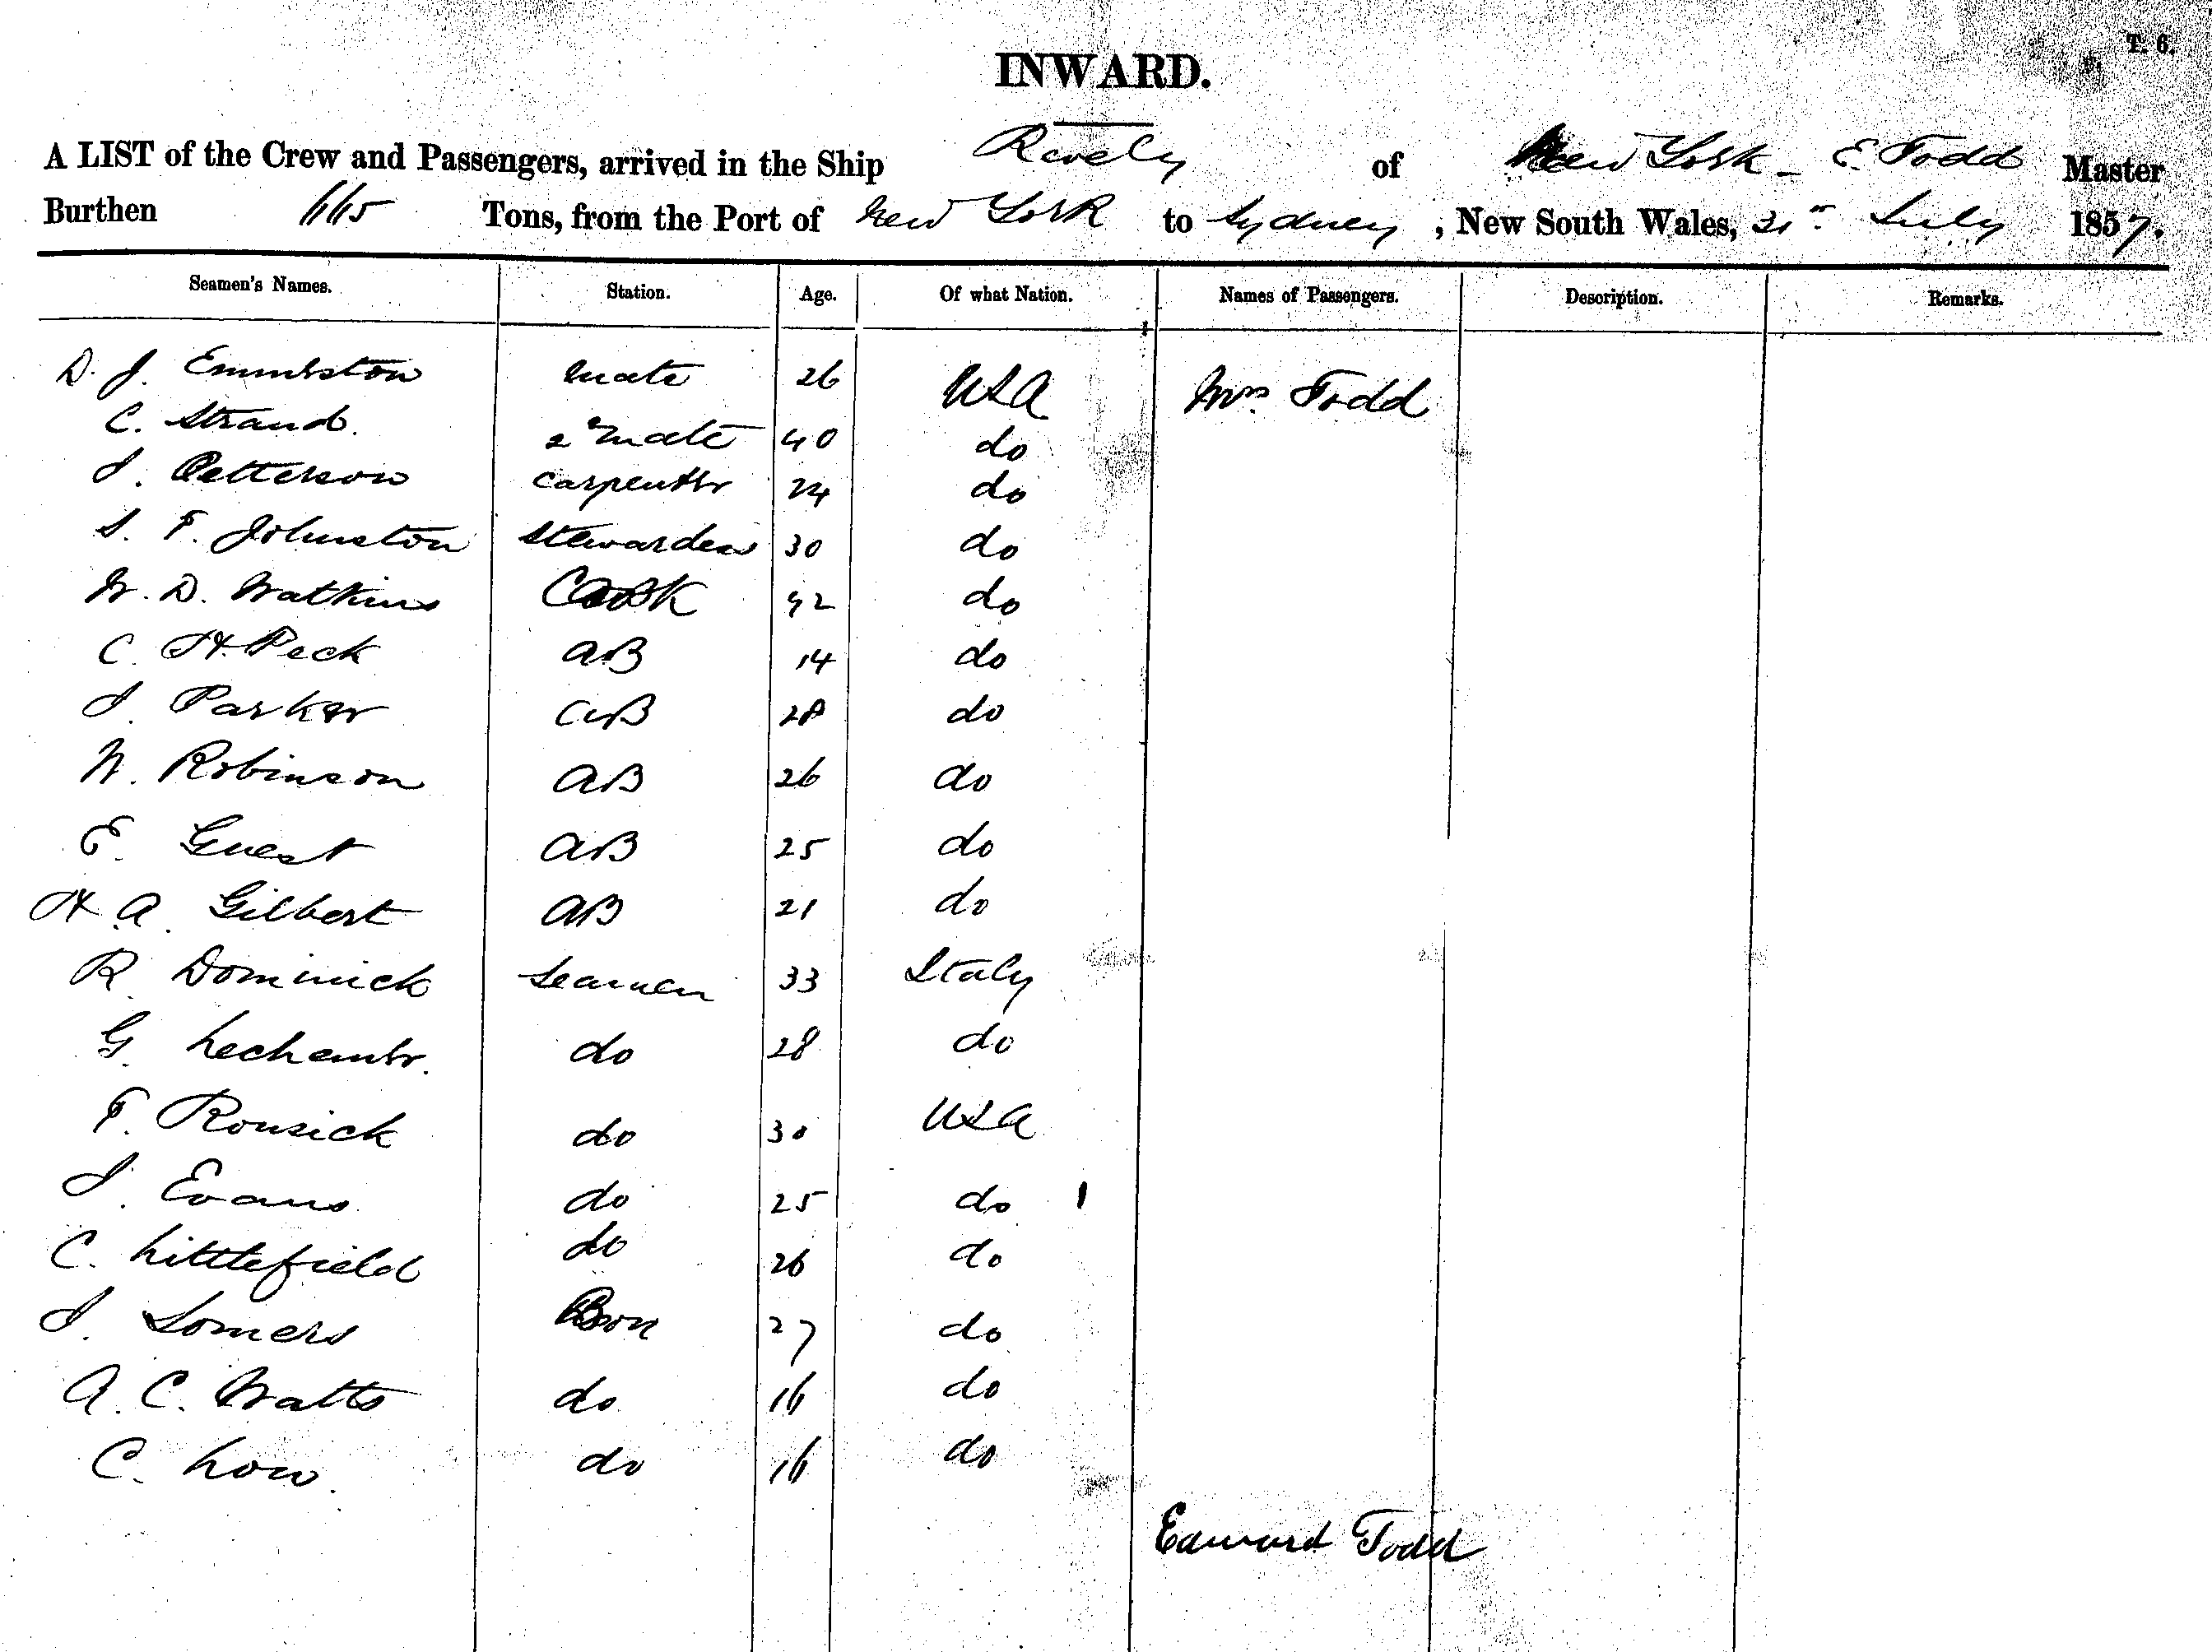 T. 6.
INWARD.
A LIST of the Crew and Passengers, arrived in the Ship Rively of New York - E. Todd Master
Burthen 665 Tons, from the Port of New York to Sydney, New South Wales, 31st July 1857.
Seamen's Names. Station. Age. Of what Nation. Names of Passengers. Description. Remarks.
D. J. Emmerston mate 26 USA Mrs Todd
C. Strand. 2 mate 40 do
J. Petterson carpenter 24 do
S. F. Johnston Stewardess 30 do
W. D. Watkins Cook 42 do
C. H. Peck AB 14 do
J. Parker AB 28 do
W. Robinson AB 26 do
E. Guest AB 25 do
H. A. Gilbert AB 21 do
R. Dominick Seaman 33 Italy
G. do 28 do
F. Rousick do 30 USA
J. Evans do 25 do
C. Littlefield do 26 do
J. Somers Boy 27 do
A. C. Watts do 16 do
C. Low. do 16 do
Edward Todd